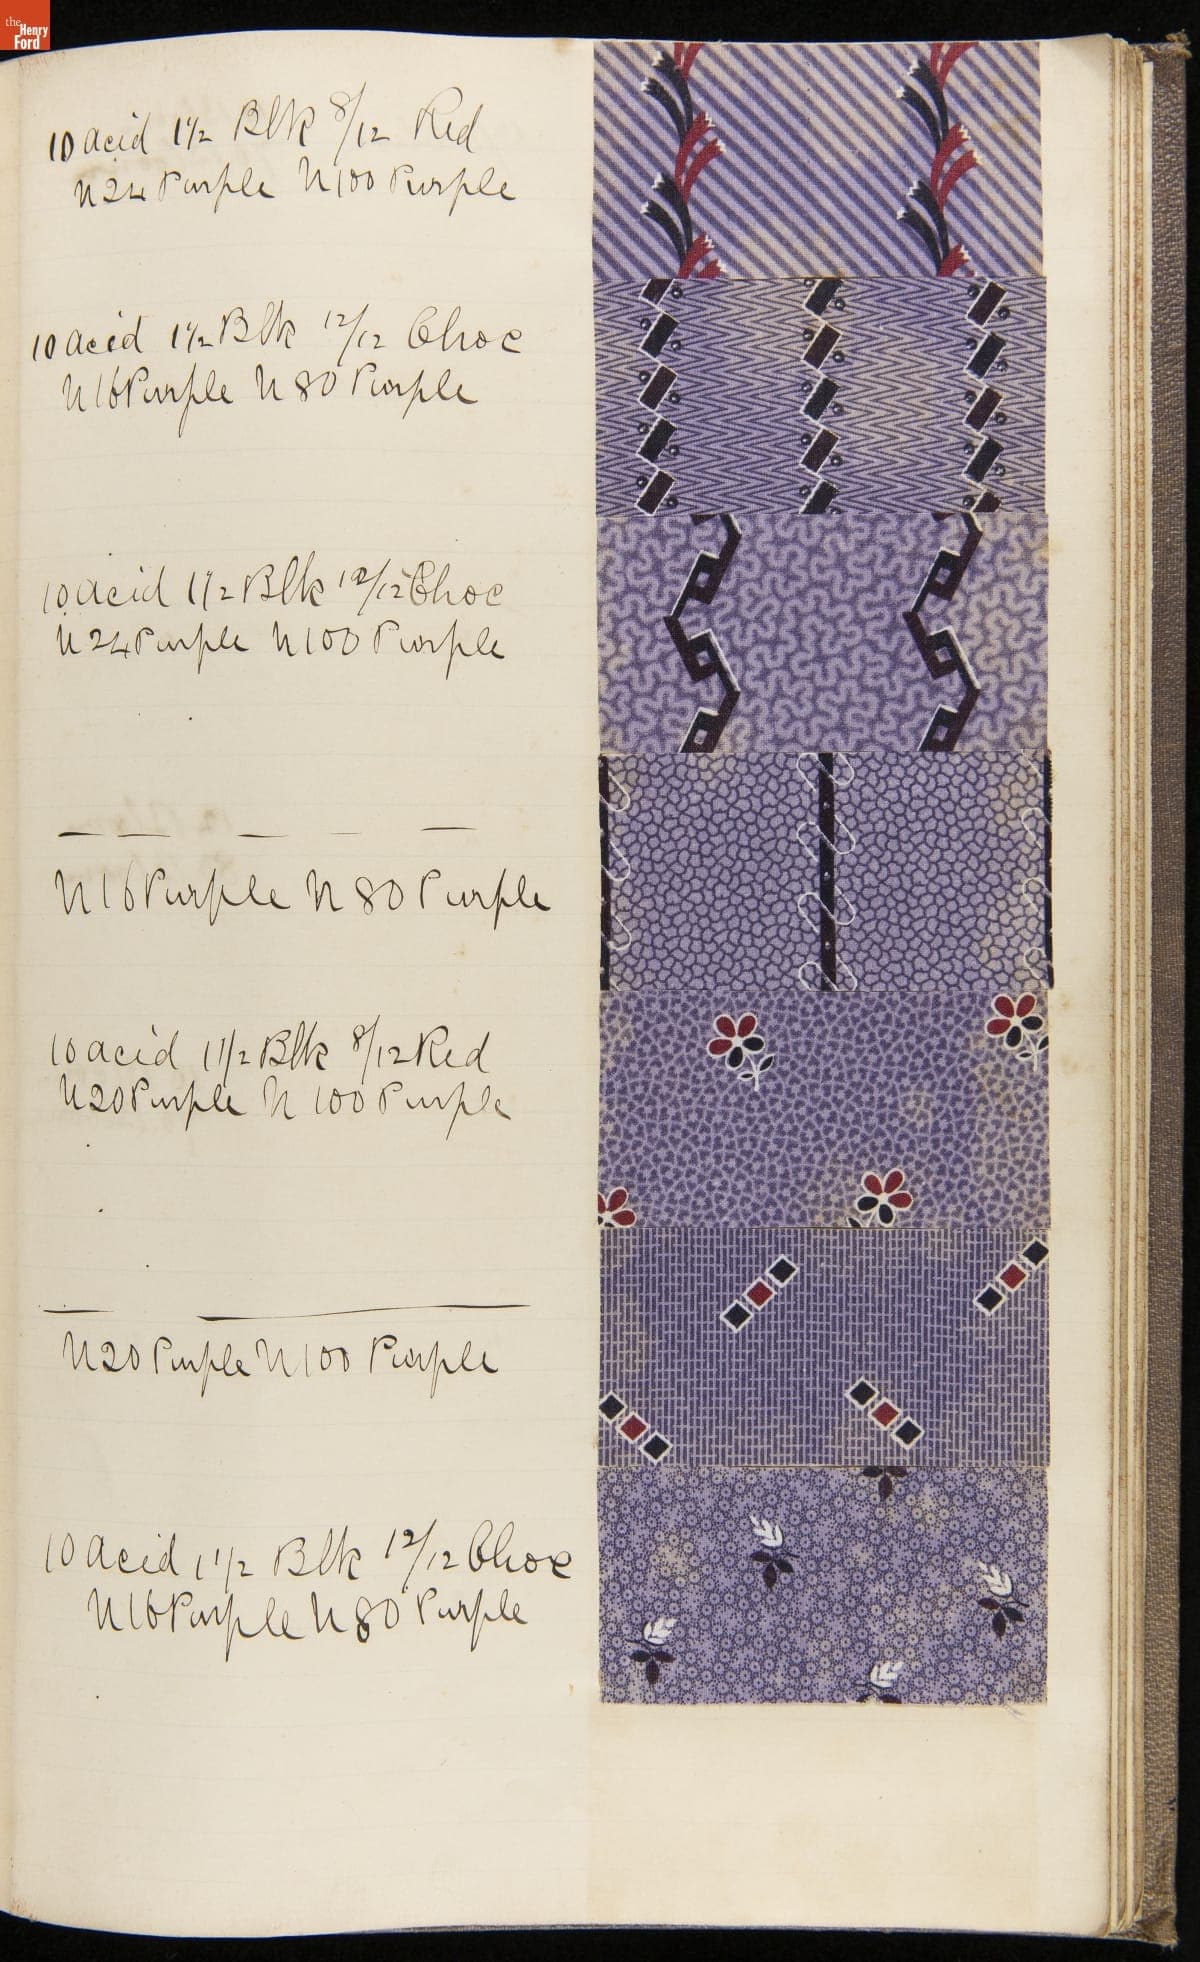 the Henry Ford
10 acid 1 1/2 Blk 8/12 Red
N24 Purple N100 Purple
10 acid 1 1/2 Blk 12/12 Choc
N16 Purple N80 Purple
10 acid 1 1/2 Blk 12/12 Choc
N24 Purple N100 Purple
N16 Purple N80 Purple
10 acid 1 1/2 Blk 8/12 Red
N20 Purple N100 Purple
N20 Purple N100 Purple
10 acid 1 1/2 Blk 12/12 Choc
N16 Purple N80 Purple